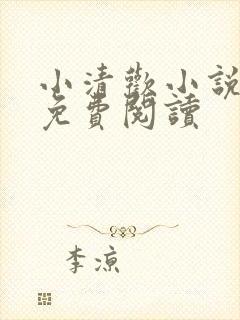 小清歡小說
免費閱讀
李涼